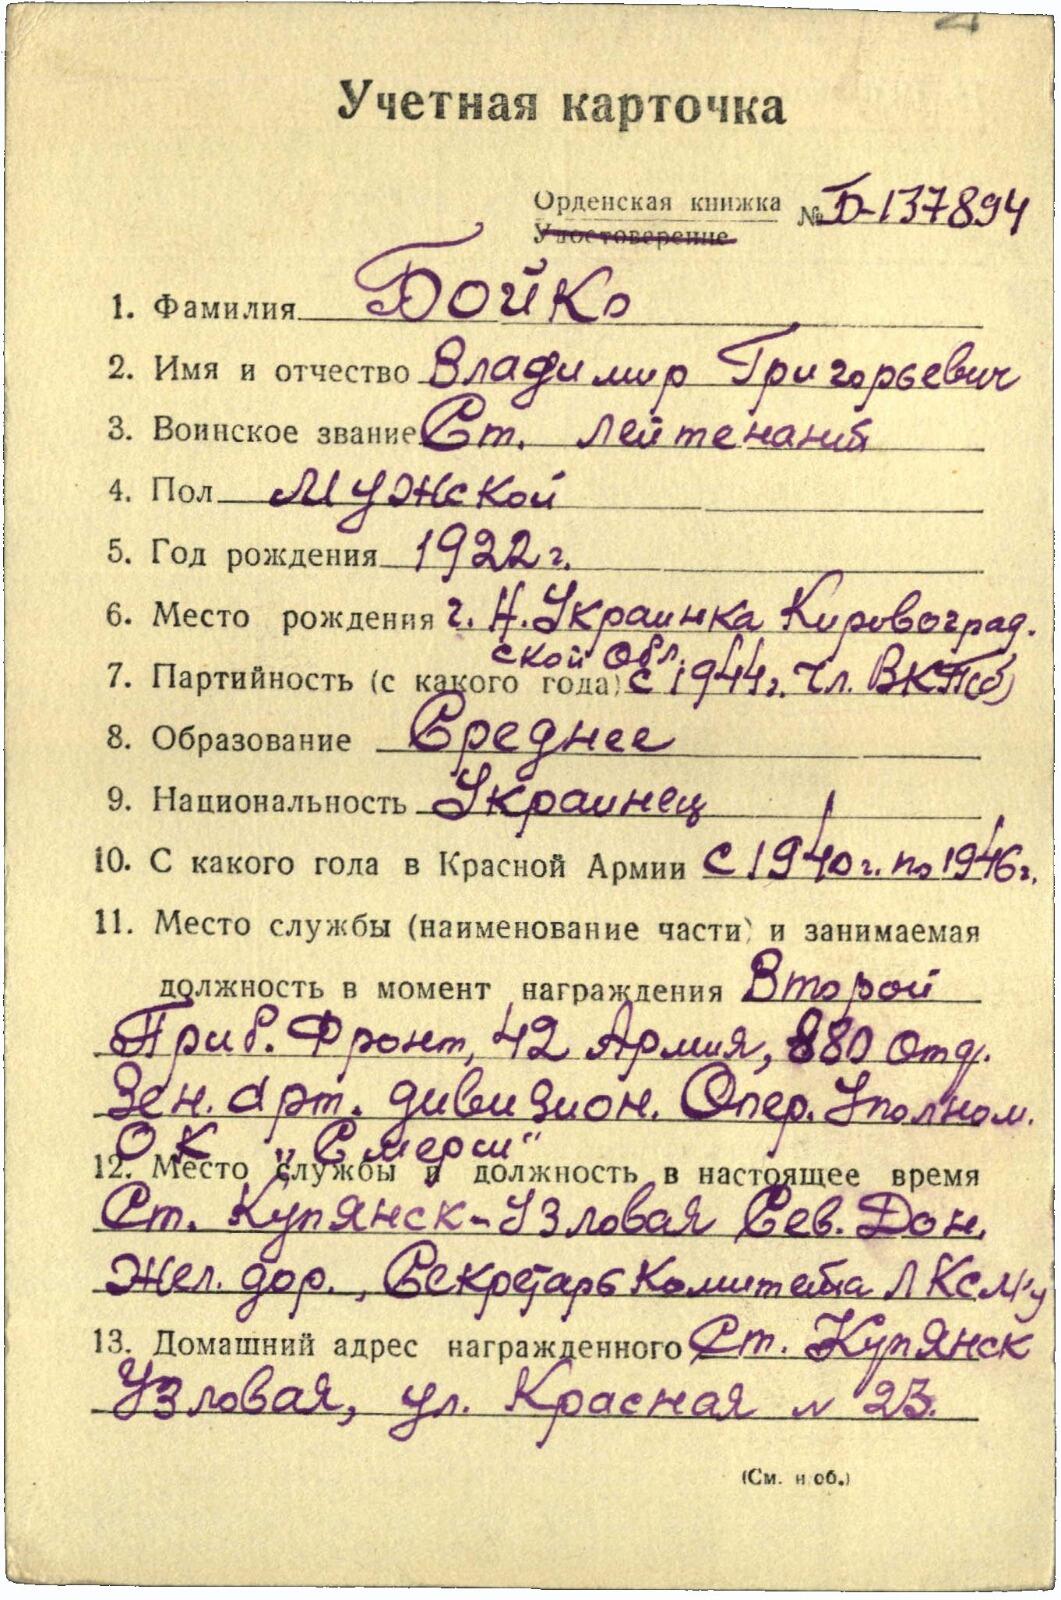 Учетная карточка
Орденская книжка № Б-137894
Удостоверение
1. Фамилия Бойко
2. Имя и отчество Владимир Григорьевич
3. Воинское звание Ст. лейтенант
4. Пол мужской
5. Год рождения 1922 г.
6. Место рождения г. Н. Украинка Кировоград.
ской обл.
7. Партийность (с какого года) с 1944 г. чл. ВКП(б)
8. Образование Среднее
9. Национальность Украинец
10. С какого гола в Красной Армии с 1940 г. по 1946 г.
11. Место службы (наименование части) и занимаемая
должность в момент награждения Второй
Приб. Фронт, 42 Армия, 880 отд.
Зен. арт. дивизион. Опер. Уполном.
О К „Смерш"
12. Место службы и должность в настоящее время
Ст. Купянск-Узловая Сев. Дон.
Жел. дор., Секретарь Комитета ЛКСМУ
13. Домашний адрес награжденного Ст. Купянск
Узловая, ул. Красная № 23.
(См. н об.)